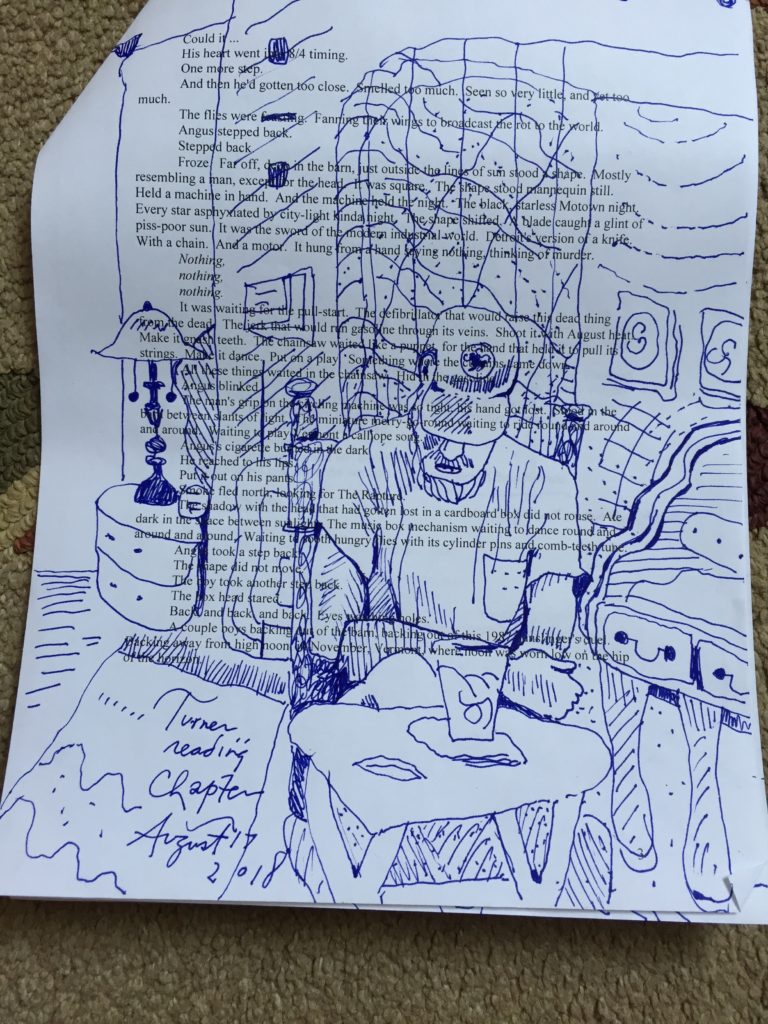 Could it ...
His heart went into 8/4 timing.
One more step.
And then he'd gotten too close. Smelled too much. Seen so very little, and yet too
much.
The flies were feasting. Fanning their wings to broadcast the rot to the world.
Angus stepped back.
Stepped back.
Froze. Far off, deep in the barn, just outside the lines of sun stood a shape. Mostly
resembling a man, except for the head. It was square. The shape stood mannequin still.
Held a machine in hand. And the machine held the night. The black, starless Motown night.
Every star asphyxiated by city-light kinda night. The shape shifted. A blade caught a glint of
piss-poor sun. It was the sword of the modern industrial world. Detroit's version of a knife.
With a chain. And a motor. It hung from a hand saying nothing, thinking of murder.
Nothing,
nothing,
nothing.
It was waiting for the pull-start. The defibrillator that would raise this dead thing
from the dead. The jerk that would run gasoline through its veins. Shoot it with August heat.
Make it gnash teeth. The chainsaw waited like a puppet, for the hand that held it to pull its
strings. Make it dance. Put on a play. Something where the curtains came down.
All these things waited in the chainsaw. Hid in the
Angus blinked.
The man's grip on the machine was so tight, his hand got lost. Stood in the
barn between slants of light. The miniature merry-go-round waiting to ride round and around
and around. Waiting to play a calliope song.
Angus's cigarette burned in the dark
He reached to his lips.
Put it out on his pants.
Smoke fled north, looking for The Rapture.
The shadow with the head that had gotten lost in a cardboard box did not rouse. Ate
dark in the space between sunlight. The music box mechanism waiting to dance round and
around and around. Waiting to sooth hungry flies with its cylinder pins and comb-teeth tune.
Angus took a step back.
The shape did not move.
The boy took another step back.
The box head stared.
Back and back, and back. Eyes holes.
A couple boys backing out of the barn, backing out of this 198 gunslinger's duel.
Backing away from high noon in November, Vermont, where noon was worn low on the hip
of the horizon.
Turner
reading
Chapter
August 17
2018